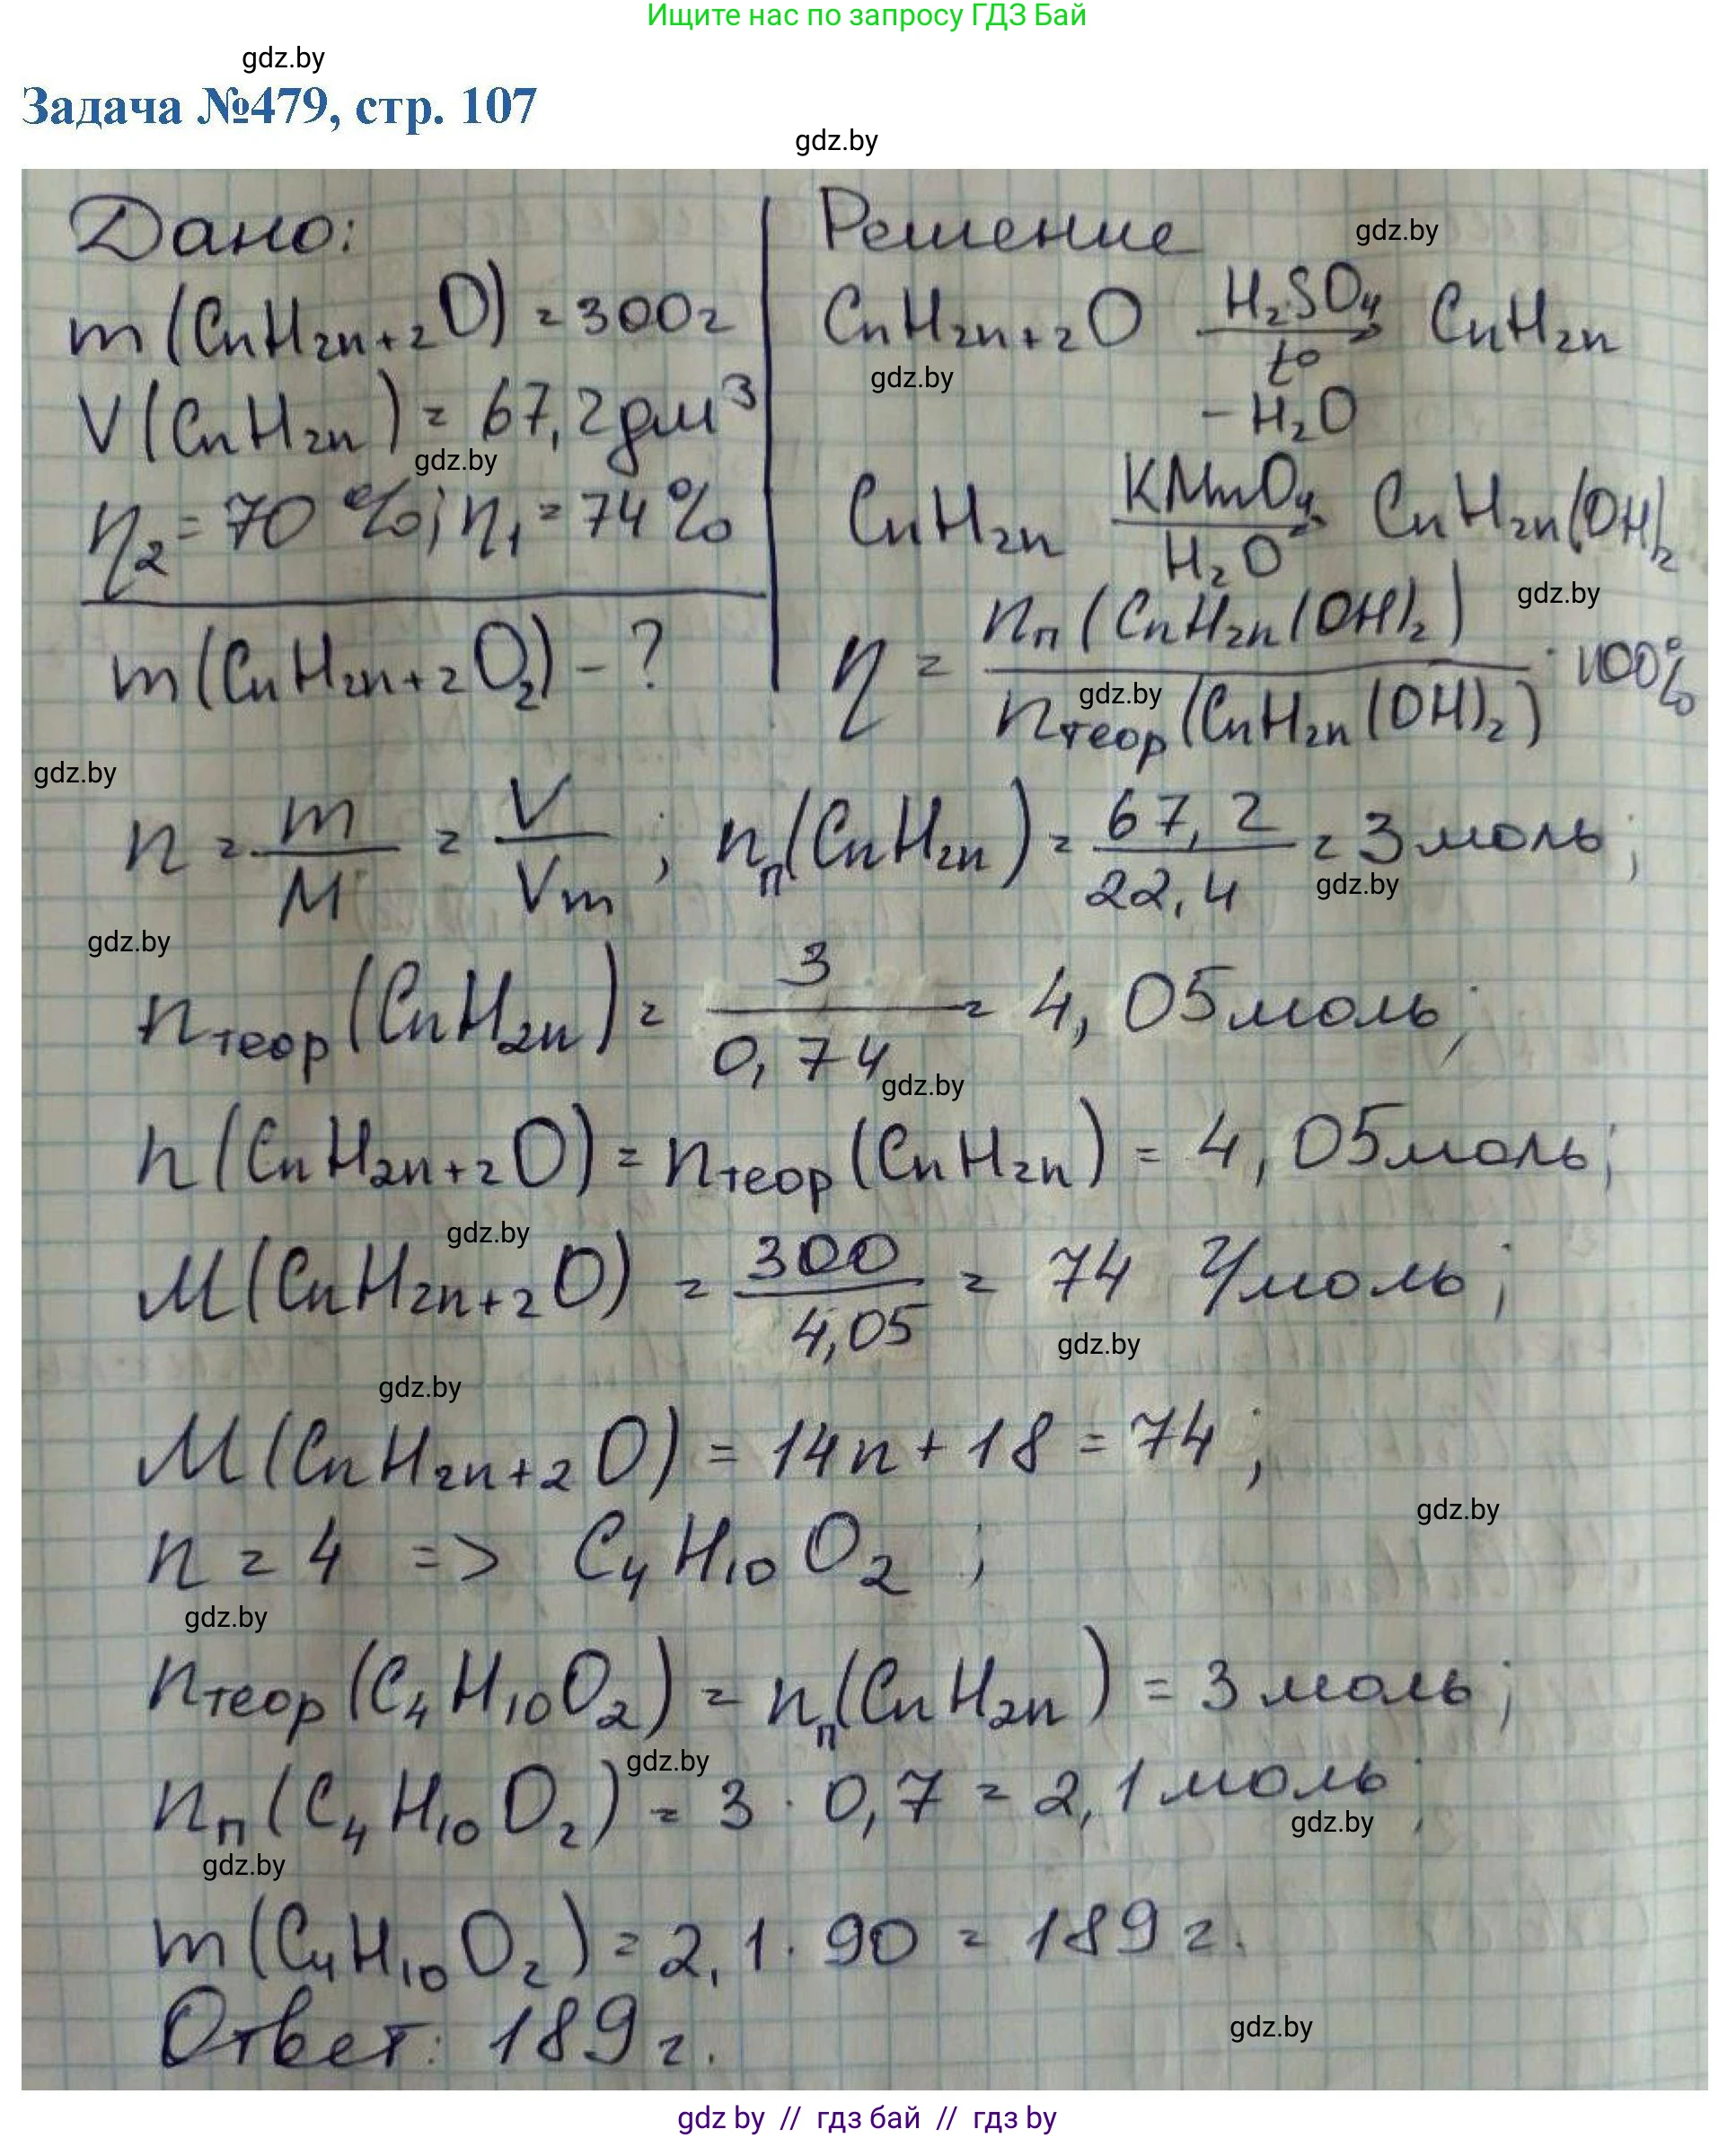 Ищите нас по запросу ГДЗ Бай
gdz.by
Задача №479, стр. 107
gdz.by
Дано:
m(CnH2n+2O) = 300г
V(CnH2n) = 67,2дм³
gdz.by
η2 = 70 %; η1 = 74%
m(CnH2n+2O2) - ?
Решение
gdz.by
CnH2n+2O H2SO4 → t° CnH2n
gdz.by
- H2O
CnH2n KMnO4 → H2O CnH2n(OH)2
gdz.by
η = nп(CnH2n(OH)2) / nтеор(CnH2n(OH)2) · 100%
gdz.by
gdz.by
n = m/M = V/Vm ; nп(CnH2n) = 67,2/22,4 = 3 моль;
gdz.by
gdz.by
nтеор(CnH2n) = 3/0,74 = 4,05моль;
gdz.by
n(CnH2n+2O) = nтеор(CnH2n) = 4,05моль;
gdz.by
M(CnH2n+2O) = 300/4,05 = 74 г/моль;
gdz.by
gdz.by
M(CnH2n+2O) = 14n + 18 = 74;
gdz.by
n = 4 => C4H10O2 ;
gdz.by
nтеор(C4H10O2) = nп(CnH2n) = 3 моль;
gdz.by
nп(C4H10O2) = 3 · 0,7 = 2,1 моль;
gdz.by
gdz.by
m(C4H10O2) = 2,1 · 90 = 189 г.
Ответ: 189 г.
gdz.by
gdz by // гдз бай // гдз by